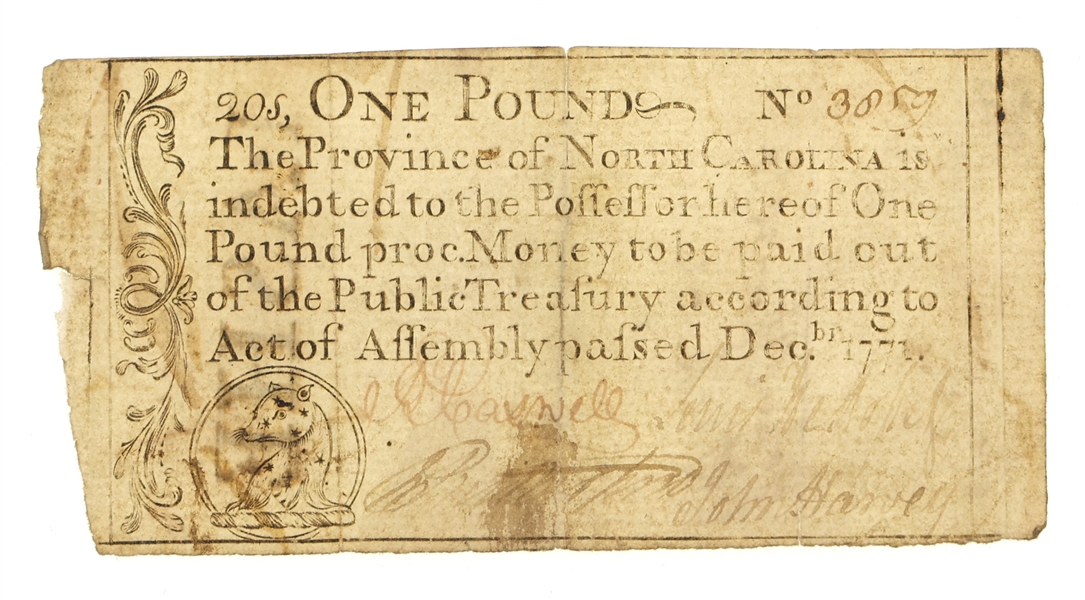 20s, ONE POUND No 3859
The Province of NORTH CAROLINA is
indebted to the Poſſeſſor hereof One
Pound proc. Money to be paid out
of the Public Treaſury according to
Act of Aſſembly paſsed Dec.br 1771.
R Caswell
John Harvey